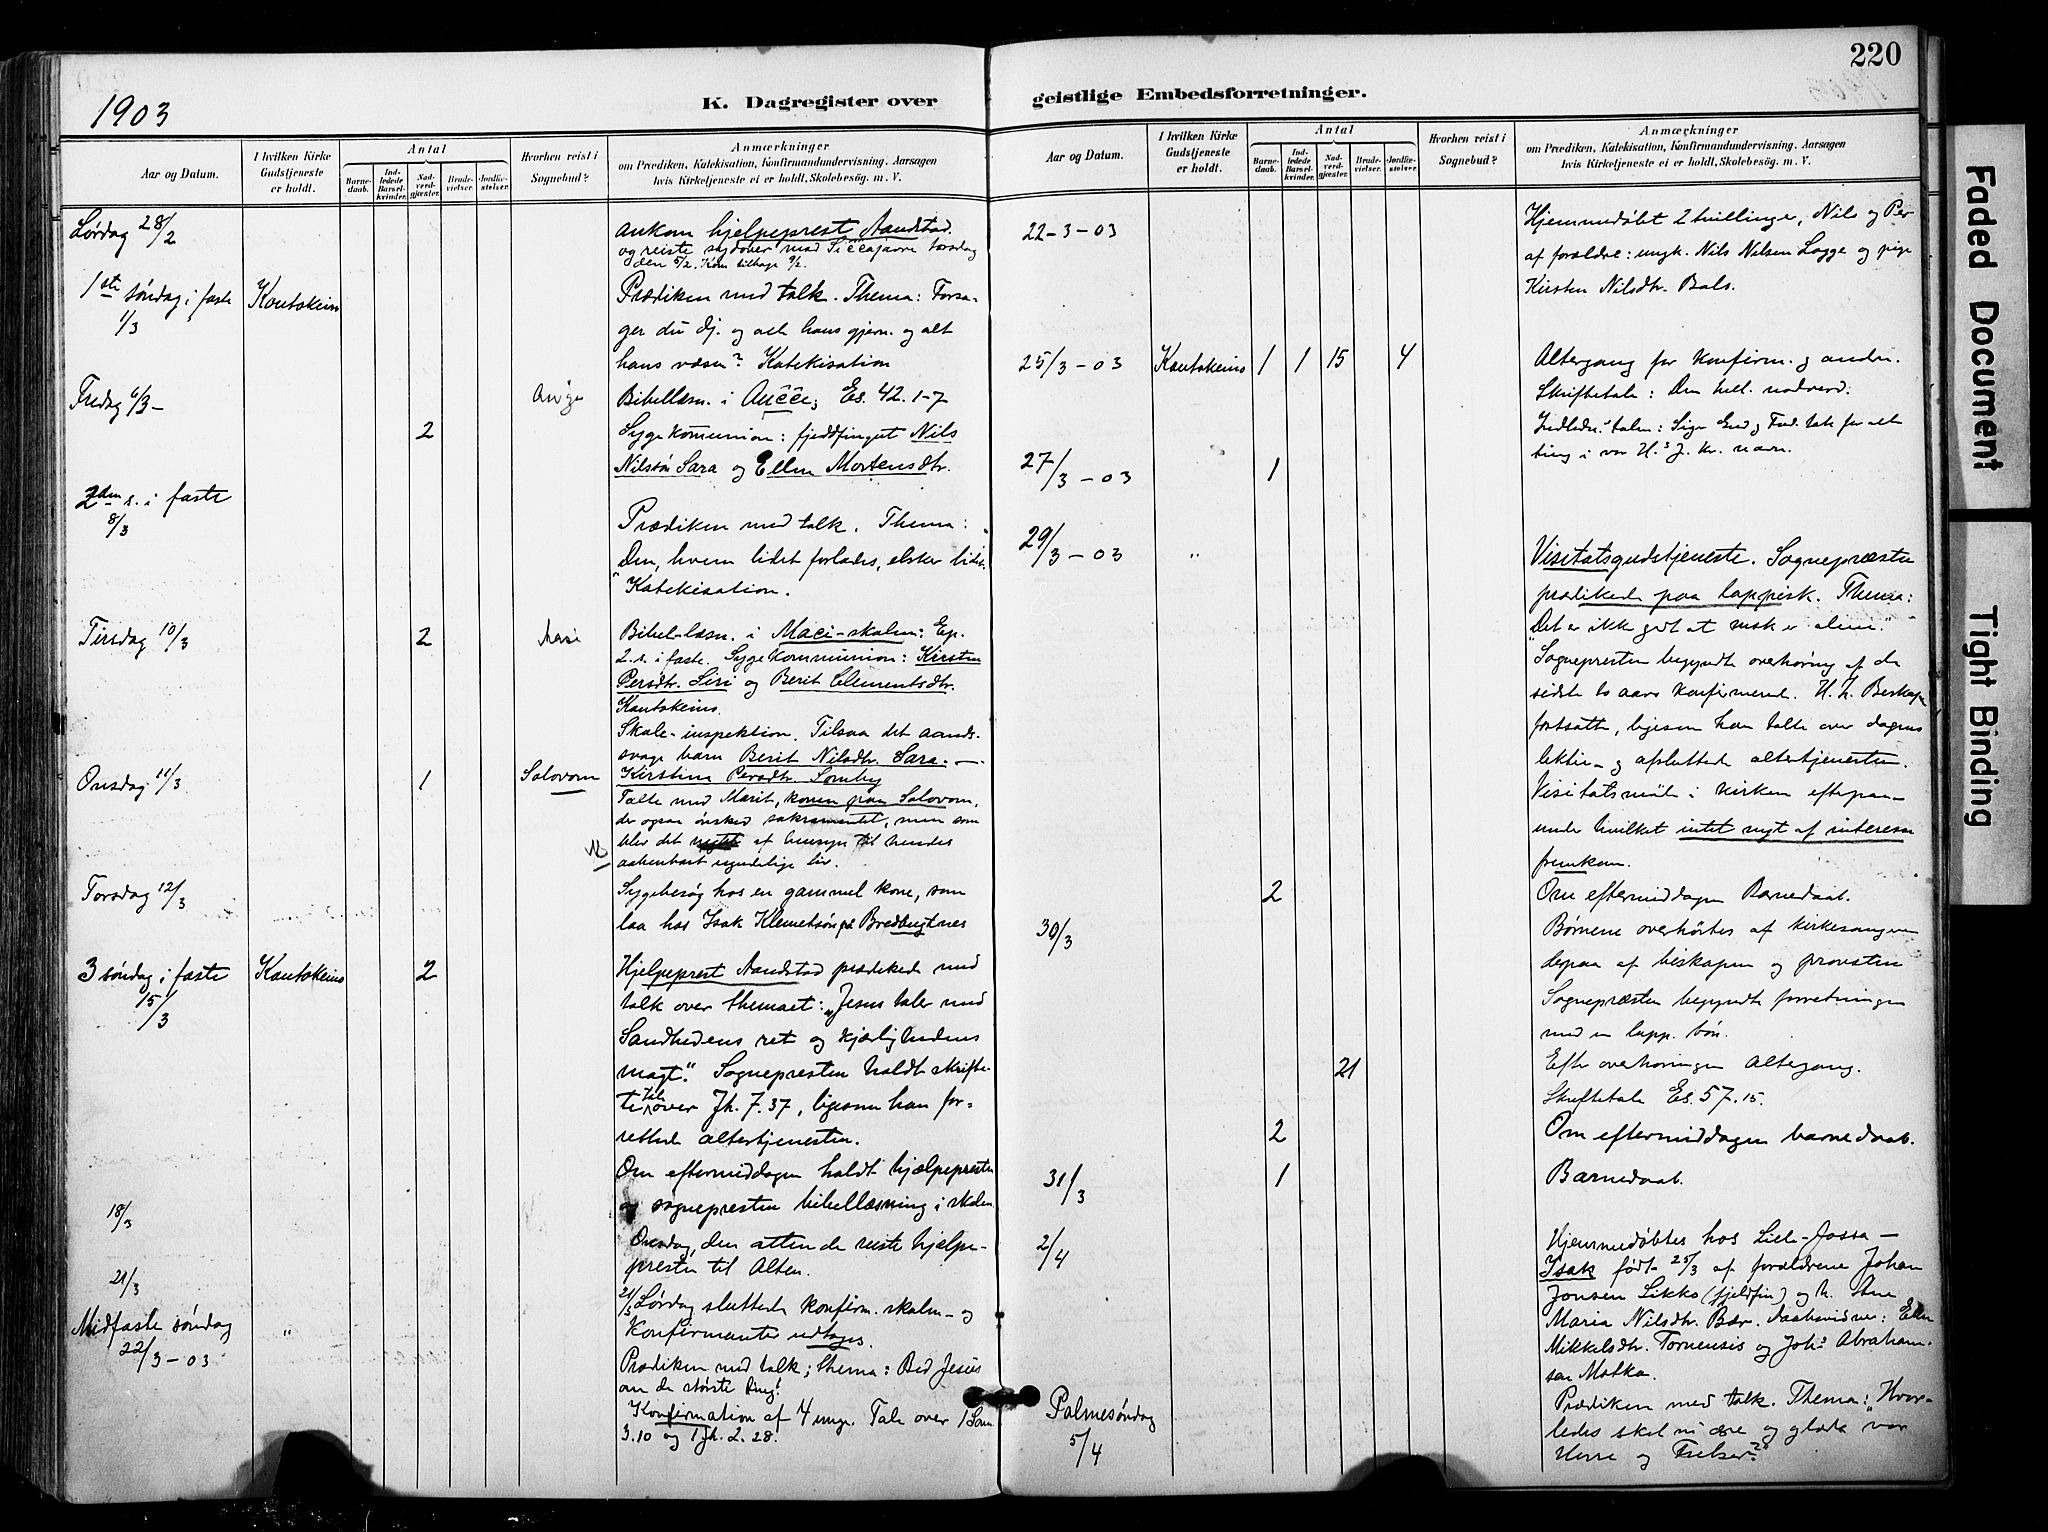 1903
K. Dagregister over
Aar og Datum.
I hvilken Kirke
Gudstjeneste
er holdt.
Antal
Barne-
daab.
Ind-
ledede
Barsel-
kvinder.
Nad-
verd-
gjæster.
Brude-
vielser.
Jordfæ-
stelser.
Hvorhen reist i
Sognebud?
Anmærkninger
om Prædiken, Katekisation, Konfirmandundervisning, Aarsagen
hvis Kirketjeneste ei er holdt, Skolebesög. m. V.
Lørdag 28/2
ankom hjelpeprest Aandstad.
og reiste sydover med Siccajavre torsdag
den 5/2. Kom tilbage 9/2.
1ste søndag i faste 1/3 Kautokeino
Prædiken med talk. Thema: Forsa-
ger du dj. og alle hans gjern. og alt
hans væsen? Katekisation
Fredag 6/3 –
Bibellæsn. i Aučče; Es. 42. 1-7
2 Sygekommunion: fjeldfinget Nils
Nilssøn Sara og Ellen Mortensdtr.
2den s. i faste 8/3
Prædiken med talk. Thema:
Den, hvem lidet forlades, elsker lidet."
Katekisation.
Tirsdag 10/3 2 Masi
Bibel-læsn. i Maci-skolen: Ep.
2. s. i faste. Sygekommunion: Kirsten
Persdtr. Siri og Berit Clementsdtr.
Kautokeino.
Skole-inspektion. Tilsaa det aands-
svage barn Berit Nilsdtr. Sara. –
Onsdag 11/3 1 Solovom
Kirstina Persdtr. Somby
Talte med Marit, konen paa Solovom,
der ogsaa ønsked sakramentet, men som
blev det af hensyn til hendes
aabenbart ugudelige liv.
Torsdag 12/3
Sygebesøg hos en gammel kone, som
laa hos Isak Klemetsøn på Bredbugtnes
3 søndag i faste 15/3 Kautokeino 2
Hjelpeprest Aandstad prædikede med
talk over themaet: „Jesus taler med
Sandhedens ret og kjærlighedens
magt." Sognepresten holdt skrifte-
tale over Jh. 7. 37, ligesom han for-
rettede altertjenesten.
Om eftermiddagen holdt hjælpepresten
og sognepresten bibellæsning i skolen
18/3
Onsdag, den attende reiste hjelpe-
presten til Alten.
21/3
21/3 Lørdag sluttede konfirm. skolen – og
Konfirmanter udtoges.
Midfaste søndag 22/3 – 03 „
Prædiken med talk; thema: Bed Jesus
om de største ting!
Konfirmation af 4 unge. Tale over 1 Sam
3.10 og 1 Jh. 2. 28.
220
geistlige Embedsforretninger.
Aar og Datum.
I hvilken Kirke
Gudstjeneste
er holdt.
Antal
Barne-
daab.
Ind-
ledede
Barsel-
kvinder.
Nad-
verd-
gjæster.
Brude-
vielser.
Jordfæ-
stelser.
Hvorhen reist i
Sognebud?
Anmærkninger
om Prædiken, Katekisation, Konfirmandundervisning, Aarsagen
hvis Kirketjeneste ei er holdt, Skolebesög. m. V.
22-3-03
Hjemmedøbt 2 tvillinger, Nils og Per
af forældre: ungk. Nils Nilsen Logge og pige
Kirsten Nilsdtr. Bals.
25/3 – 03 Kautokeino 1 1 15 4
Altergang for konfirm. og andre.
Skriftetale: Den hel. nadverd.
Indledn. talen: Sige Gud og Fad. tak for alt
ting i vor H.s J. Kr. navn.
27/3 – 03 1
29/3 – 03 „
Visitatsgudstjeneste. Sognepræsten
prædikede paa lappisk. Thema:
"Det er ikke godt at msk er alene."
Sognepresten begyndte overhøring af de
sidste to aars konfirmerede. H. h. Biskopen
fortsatte, ligesom han talte over dagens
lektie – og afsluttede altertjenesten.
Visitatsmøde i kirken efterpaa –
under hvilket intet nyt af interesse
fremkom.
2 Om eftermiddagen Barnedaab.
30/3
Børnene overhörtes af kirkesangeren
derpaa af biskopen og provsten
Sognepræsten begyndte forretningen
med en lapp. bön.
21 Efter overhøringen altergang.
Skriftetale Es. 57. 15.
2 Om eftermiddagen barnedaab.
31/3 1 Barnedaab.
2/4
Hjemmedøbtes hos Lille-Jossa –
Isak født 25/3 af forældrene Johan
Jonsen Sikko (fjeldfin) og h. Ane
Maria Nilsdtr. Bær. Daabsvidner: Ellen
Mikkelsdtr. Tornensis og Johs Abraham-
sen Motka.
Palmesøndag 5/4
Prædiken med talk. Thema: „Hvor-
ledes skal vi ære og glæde vor
Herre og Frelser?"
Faded Document
Tight Binding